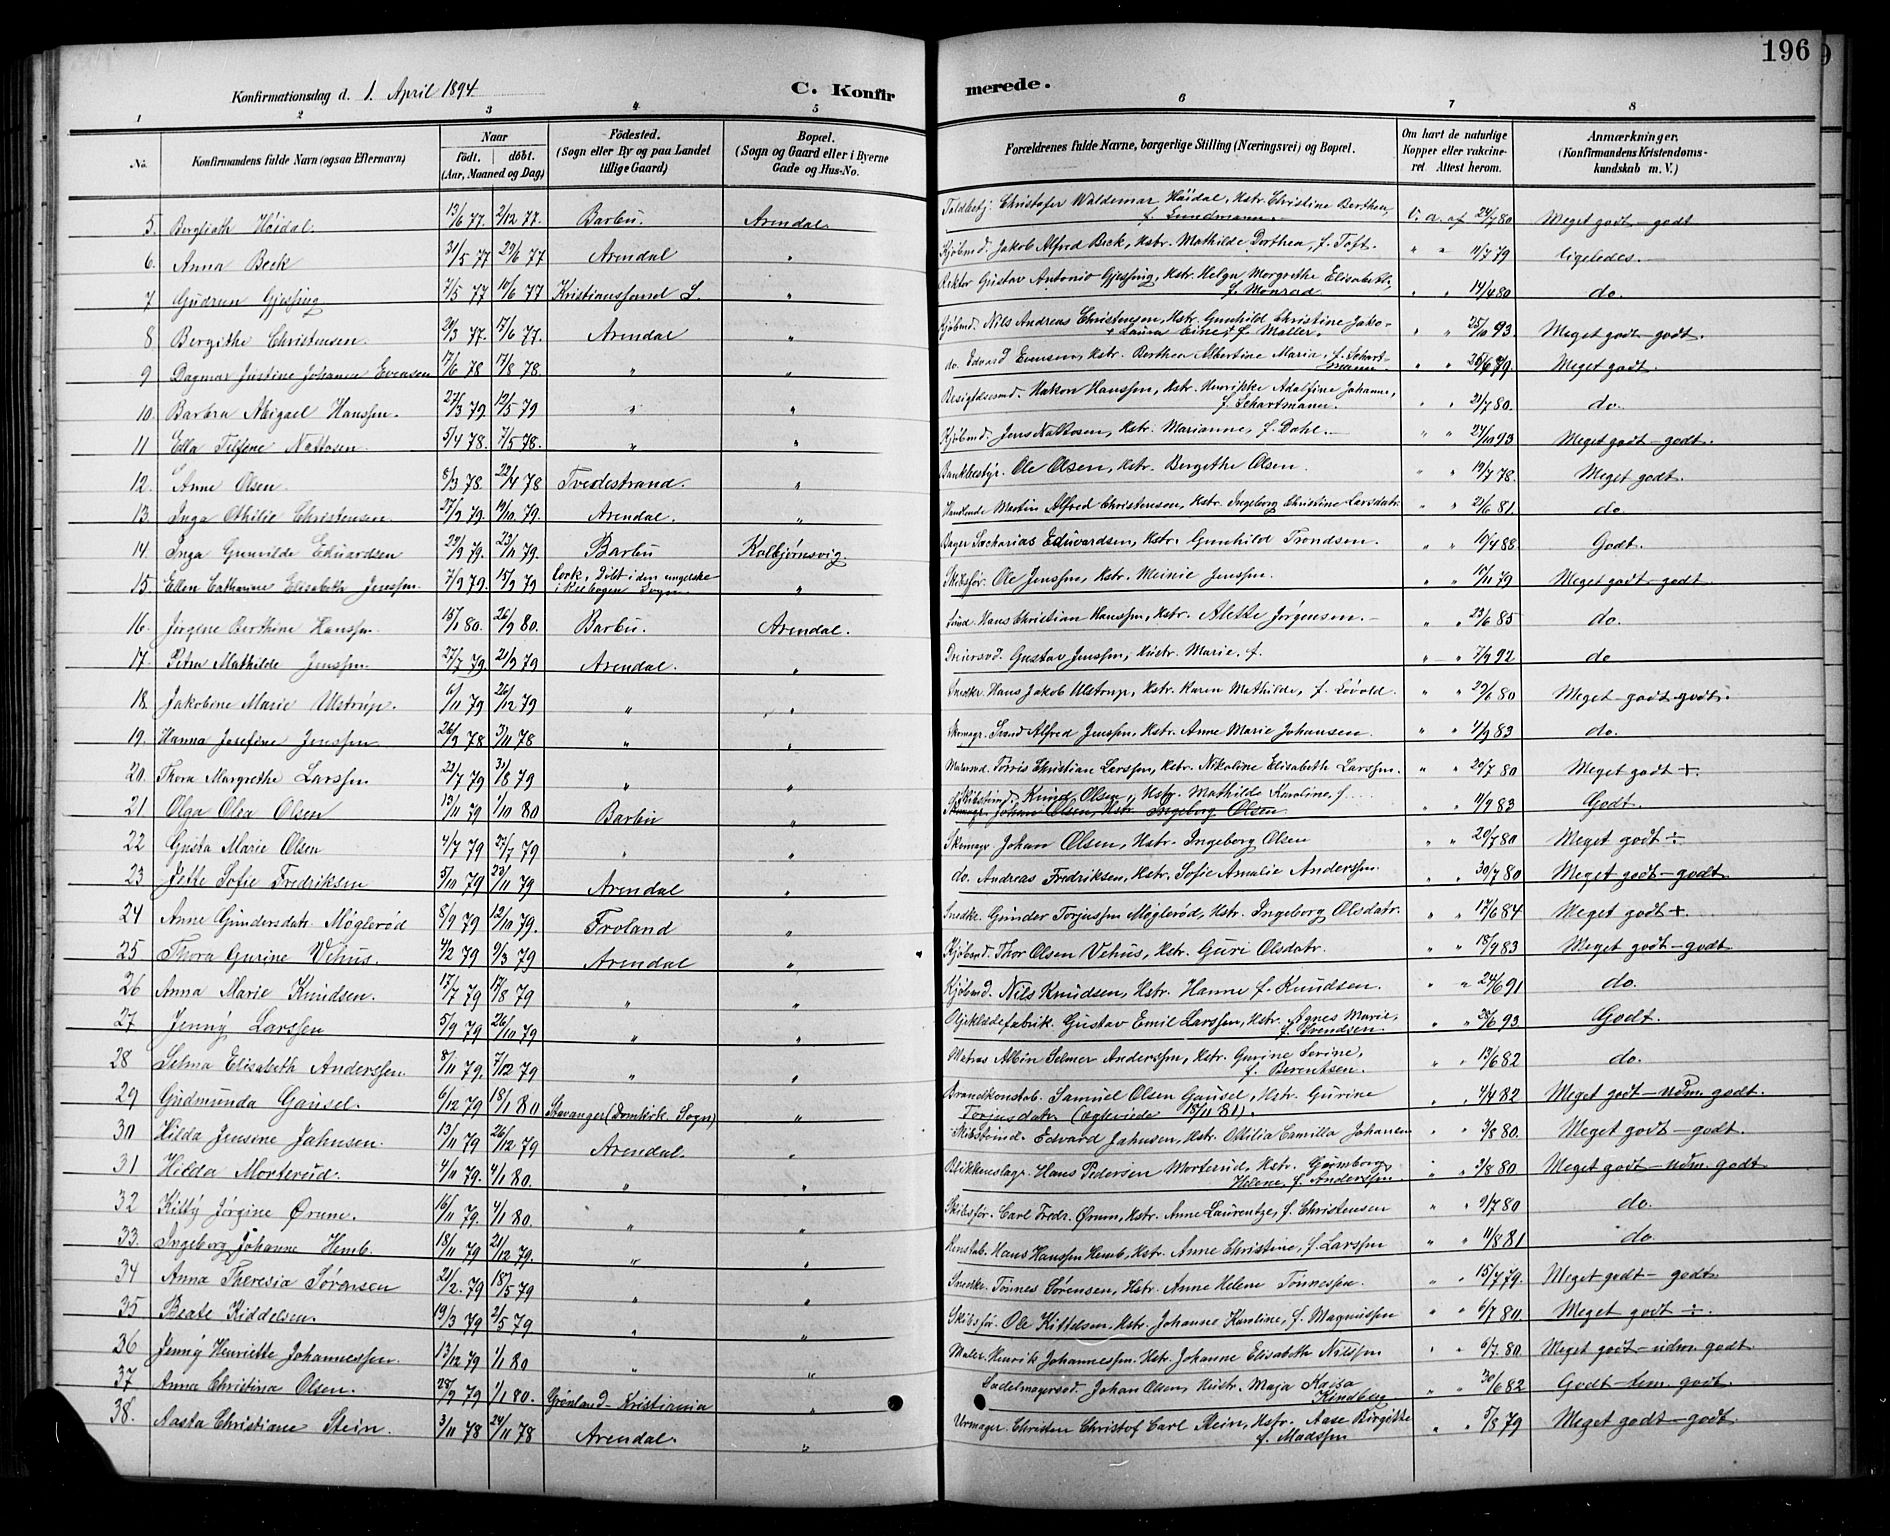 196
Konfirmationsdag d. 1. April 1894
C. Konfirmerede.
1 2 3 4 5 6 7 8
No. Konfirmandens fulde Navn (ogsaa Efternavn) Naar født. døbt. (Aar, Maaned og Dag) Fødested. (Sogn eller By og paa Landet tillige Gaard) Bopæl. (Sogn og Gaard eller i Byerne Gade og Hus-No. Forældrenes fulde Navne, borgerlige Stilling (Næringsvei) og Bopæl. Om havt de naturlige Kopper eller vakcineret. Attest herom. Anmærkninger. (Konfirmandens Kristendomskundskab m. V.)
5. Bergliath Höidal. 13/6 77. 2/12 77. Barbu. Arendal. Toldbetj. Christofer Waldemar Höidal, Hstr. Christine Berthea, f. Lundmann. v. a. af 24/7 80 Meget godt – godt
6. Anna Beck 31/5 77 29/6 77 Arendal " Kjøbmd. Jakob Alfred Beck, Hstr. Mathilde Dorthea, f. Toft. " " 11/7 79 ligeledes.
7 Gudrun Gjessing 7/5 77 10/6 77 Kristianssand S. " Rektor Gustav Antonio Gjessing, Hstr. Helga Margrethe Elisabeth, f. Monrad " " 14/4 80 do.
8. Bergithe Christensen. 20/3 77. 17/6 77. Arendal " Kjøbmd. Nils Andreas Christensen, Hstr. Gunhild Christine Jako- + Laura Eine f. Møller. " " 25/10 93. Meget godt – godt.
9 Dagmar Justine Johanne Evensen 17/6 78 17/8 78. " " do. Edvard Evensen, Hstr. Berthea Albertine Maria, f. Schartmann " " 26/6 79. Meget godt.
10. Barbra Abigael Hanssen. 27/3 79. 12/5 79 " " Hakon Hanssen, Hstr. Henrikke Adolfine Johanne, f. Schartmann. " " 21/7 80. do.
11 Ella Tilfine Nattosen 5/4 78. 7/5 78. " " Kjøbmd. Jens Nattosen, Hstr. Marianne, f. Dahl. " " 24/10 93 Meget godt – godt.
12. Anne Olsen. 8/3 78. 22/4 78 Tvedestrand. " Bankbestyr. Ole Olsen, Hstr. Bergethe Olsen. " " 19/7 78. Meget godt.
13. Inga Othilie Christensen 27/9 79. 19/10 79. Arendal. " Handlende Martin Alfred Christensen, Hstr. Ingeborg Christine Larsdatr. " " 21/6 81. do.
14. Inga Gunvilde Eduardsen 22/9 79. 23/11 79 Barbu Kolbjørnsvig Bager Sacharias Eduvardsen, Hstr. Gunhild Trondsen. " " 10/4 88 Godt.
15. Ellen Catharine Elisabeth Jenssen. 7/9 79. 15/9 79 Cork, Døbt i den engelske Sogn. " Skibsfør. Ole Jenssen, Hstr. Meinie Jenssen. " " 10/11 79 Meget godt – godt
16. Jørgine Berthine Hanssen. 15/1 80. 26/9 80. Barbu. Arendal. Hans Christian Hanssen, Hstr. Alette Jørgensen. " " 23/6 85 do.
17. Petra Mathilde Jenssen. 27/7 79 21/9 79 Arendal. " Dreiersvd. Gustav Jenssen, Hustr. Marie, f. " " 7/9 92 do
18. Jakobine Marie Ulstrup. 6/11 79 26/12 79 " " Snedkr. Hans Jakob Ulstrup, Hstr. Karen Mathilde, f. Løvold. " " 29/6 80 Meget godt – godt.
19. Hanna Josefine Jenssen 26/9 78 3/11 78 " " Skomagr. Alfred Jenssen, Hstr. Anne Marie Johansen. " " 4/9 83 do.
20. Thora Margrethe Larssen 22/7 79 31/8 79 " " Torris Christian Larssen, Hstr. Nikoline Elisabeth Larssen. " " 20/7 80 Meget godt +.
21 Olga Olea Olsen 13/11 79 1/10 80 Barbu " Skibstimd. Knud Olsen, Hstr. Mathilde Karoline, f. .... " " 11/9 83 Godt.
Skomagr. Johan Olsen, Hstr. Ingeborg Olsen
22 Gusta Marie Olsen 4/7 79 27/7 79 " " Skomagr Johan Olsen, Hstr. Ingeborg Olsen " " 20/7 80 Meget godt ÷
23 Jette Sofie Fredriksen 5/10 79 23/11 79 Arendal " do. Andreas Fredriksen, Hstr. Sofie Amalie Anderssen " " 30/7 80 Meget godt – godt
24 Anne Gundersdatr. Møglerød 8/9 79 12/10 79. Froland " Snedkr. Gunder Torjussen Møglerød, Hstr. Ingeborg Olsdatr. " " 17/6 84 Meget godt +.
25 Thora Gurine Vehus. 4/2 79 9/3 79 Arendal " Kjøbmd. Thor Olsen Vehus, Hstr. Guri Olsdatr. " " 18/9 83 Meget godt – godt
26 Anna Marie Knudsen. 17/7 79 17/8 79 " " Kjøbmd. Nils Knudsen, Hstr. Hanne f. Knudsen. " " 24/6 91 do.
27 Jenny Larssen 5/9 79 26/10 79 " " Oljeklædefabrik. Gustav Emil Larssen, Hstr. Agnes Marie, f. Svendsen. " " 28/6 93 Godt.
28 Selma Elisabeth Anderssen. 8/11 79 7/12 79 " " Matros Albin Selmer Anderssen, Hstr. Gurine Serine, f. Berentsen. " " 13/6 82 do.
29 Gudmunda Gausel. 6/12 79 18/11 80 Stavanger (Domkirk. Sogn) " Brandkonstab. Samuel Olsen Gausel, Hstr. Gurine Torjusdatr. (ægteviede 18/11 81). " 4/4 82 Meget godt – udm. godt.
30 Hilda Jensine Jahnsen. 13/11 79 26/12 79 Arendal. " Skibstømd. Edvard Jahnsen, Hstr. Ottilia Camilla Johansen " " 3/8 80. Meget godt – godt.
31 Hilda Morterud. 4/11 79. 4/1 80. " " Blikkenslagr. Hans Pedersen Morterud, Hstr. Gunnborg Helene, f. Anderssen. " " 3/8 80 Meget godt – udm. godt
32 Kitty Jørgine Ørum. 16/11 79. 4/1 80. " " Skibsför. Carl Fredr. Ørum, Hstr. Anne Laurentze, f. Christensen " " 9/7 80 do.
33. Ingeborg Johanne Hemb. 18/11 79 21/12 79. " " Konstab. Hans Hanssen Hemb, Hstr. Anne Christine, f. Larssen " " 11/8 81 do.
34 Anna Theresia Sørensen 21/2. 79 18/5 79 " " Snedkr. Tönnes Sørensen, Hstr. Anne Helene Tönnessen. " " 15/7 79. Meget godt – godt.
35 Beate Kiddelsen. 19/3 79 2/5 79 " " Skibsfør. Ole Kittelsen. Hstr. Johanne Karoline, f. Magnussen " " 6/7 80 Meget godt ÷.
36 Jenny Henriette Johannessen. 13/12 79 1/1 80 " " Maler. Henrik Johannessen. Hstr. Johanne Elisabeth Nilssen " " 6/7. 80. Meget godt – udm. godt.
37 Anna Christina Olsen. 28/9 79 1/1 80. Grønland – Kristiania " Sadelmagersvd. Johan Olsen, Hustr. Maja Kaisa Kindberg " " 30/6 82 Godt – tem. godt.
38. Aasta Christiane Stein. 3/11 78 24/11 78 Arendal. " Urmager. Christen Christof Carl Stein, Hstr. Aase Birgitte f. Madssen " " 5/8 79 Meget godt – godt.